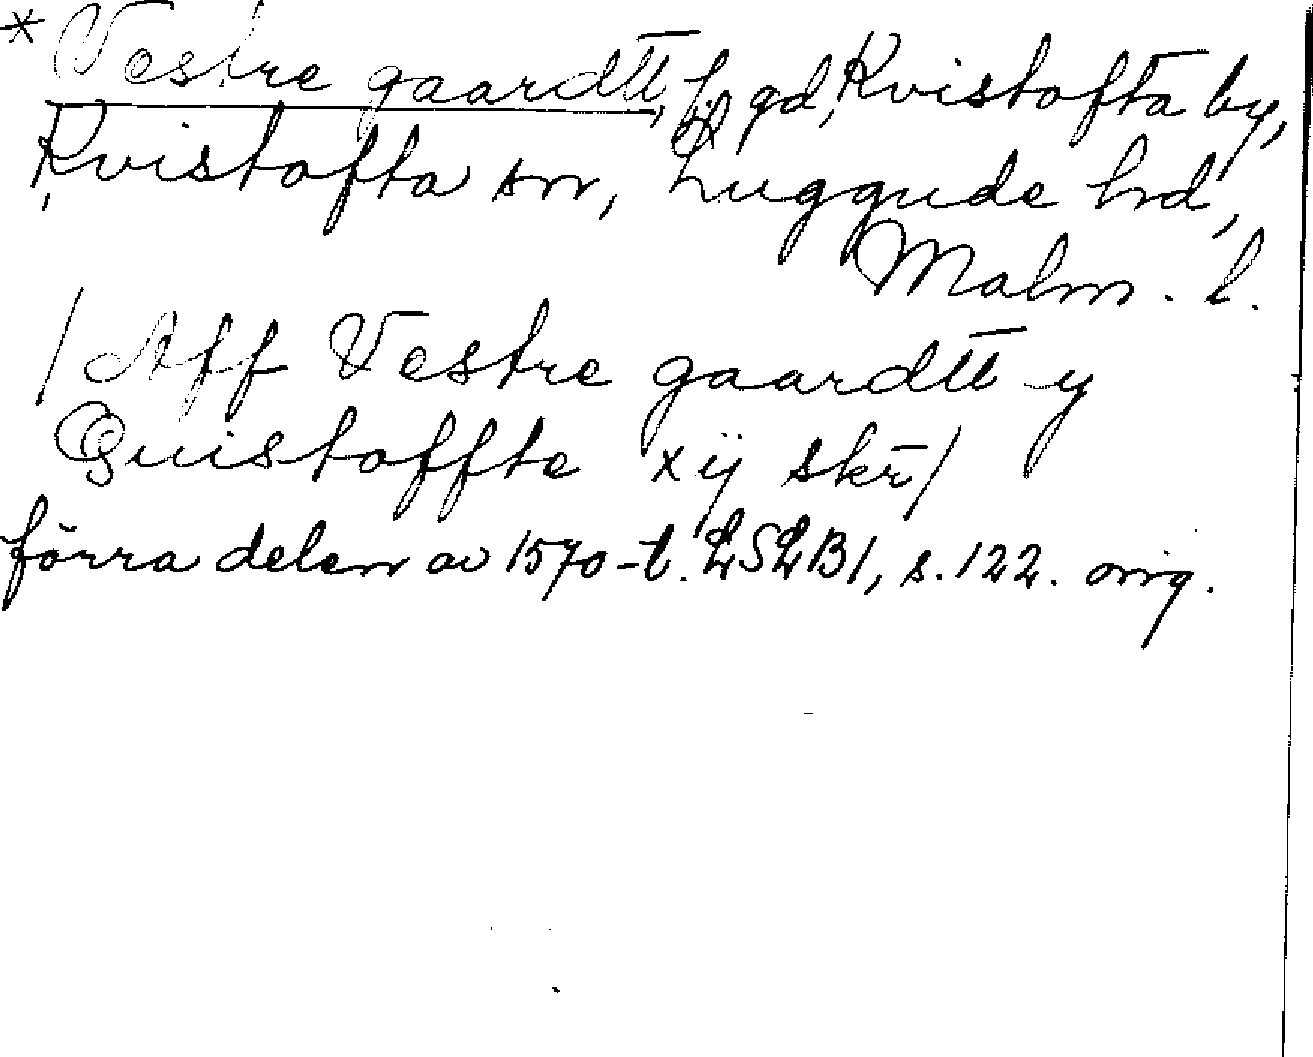 * Vestre gaardtt, gd, Kvistofta by,
Kvistofta sn, Luggude hrd,
Malm. l.
/ Aff Vestre gaardtt y
Quistoffte xij skr̄ /
förra delen av 1570-t. LSLB1, s. 122. orig.